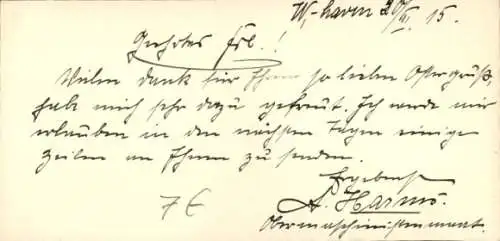 W,-haven 20/VI. 15.
Geehrtes Frl.!
Vielen Dank für Ihren so lieben Ostergruß,
hab mich sehr dazu gefreut. Ich werde mir
erlauben in den nächsten Tagen einige
Zeilen an Ihnen zu senden.
Ergebenst
A. Harms.
Obermaschinistenmaat.
7 €